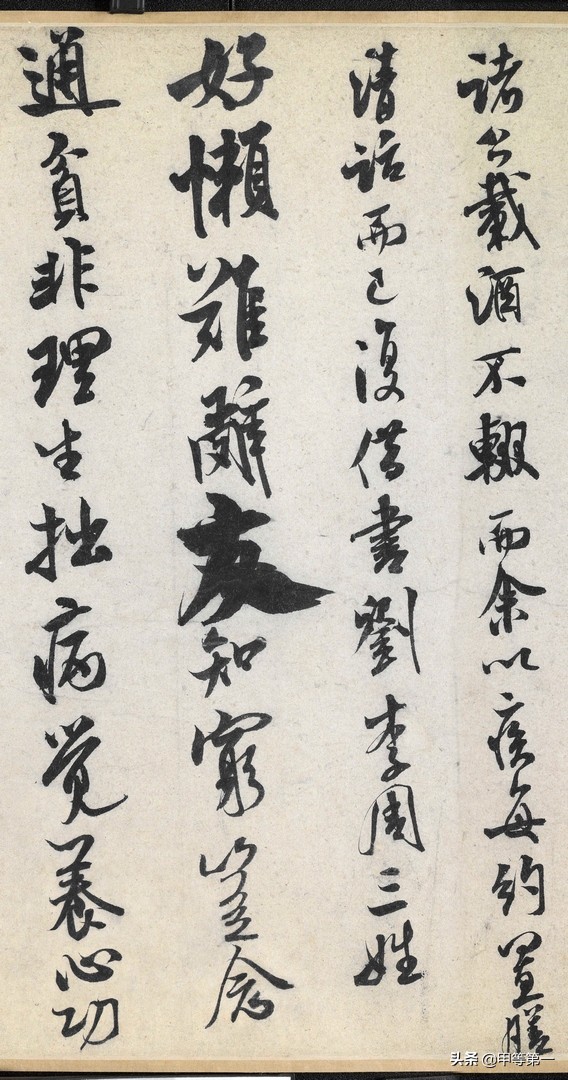 諸公載酒不輟而余以疾每約置膳
清話而已復借書劉李周三姓
好懶難辭友知窮豈念
通貧非理生拙病覺養心功
头条 @甲等第一